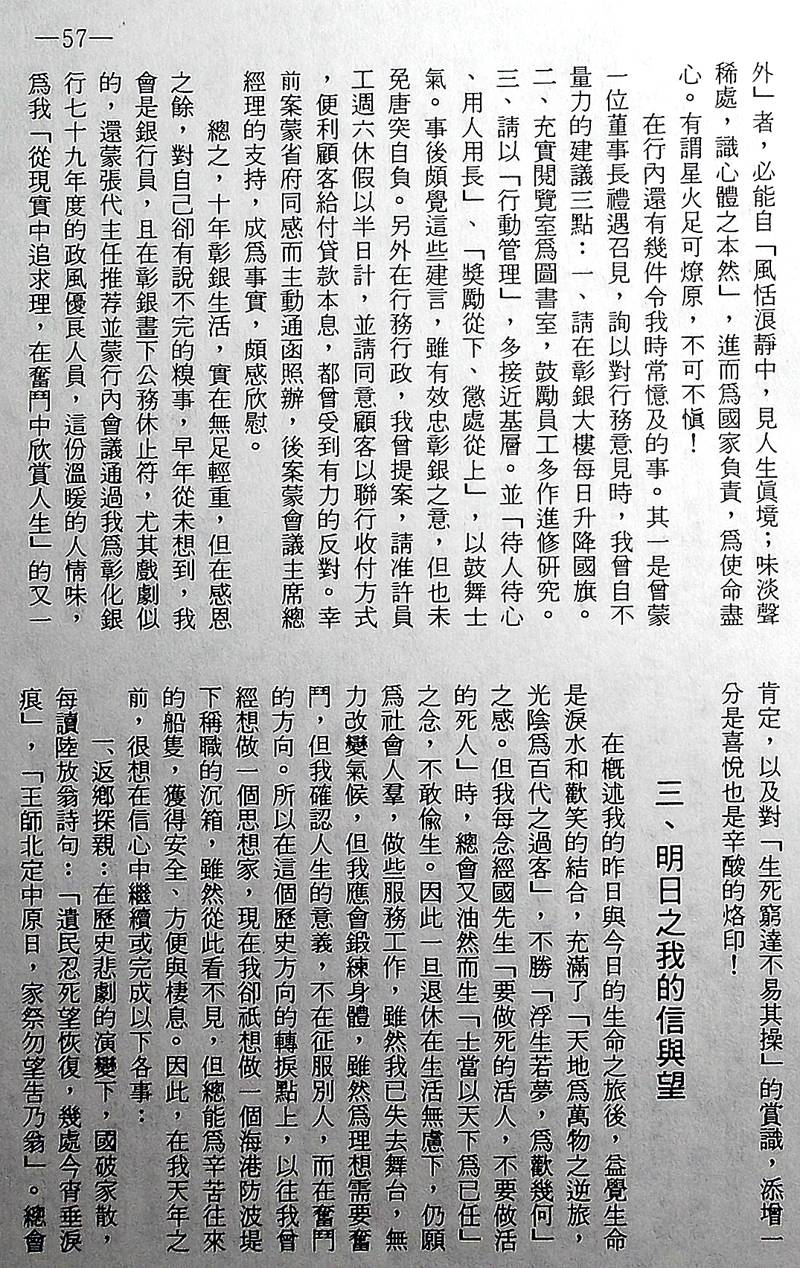 —57—
外」者，必能自「風恬浪靜中，見人生眞境；味淡聲
稀處，識心體之本然」，進而爲國家負責，爲使命盡
心。有謂星火足可燎原，不可不愼！
在行內還有幾件令我時常憶及的事。其一是曾蒙
一位董事長禮遇召見，詢以對行務意見時，我曾自不
量力的建議三點：一、請在彰銀大樓每日升降國旗。
二、充實閱覽室爲圖書室，鼓勵員工多作進修研究。
三、請以「行動管理」，多接近基層。並「待人待心
、用人用長」、「獎勵從下、懲處從上」，以鼓舞士
氣。事後頗覺這些建言，雖有效忠彰銀之意，但也未
免唐突自負。另外在行務行政，我曾提案，請准許員
工週六休假以半日計，並請同意顧客以聯行收付方式
，便利顧客給付貸款本息，都曾受到有力的反對。幸
前案蒙省府同感而主動通函照辦，後案蒙會議主席總
經理的支持，成爲事實，頗感欣慰。
總之，十年彰銀生活，實在無足輕重，但在感恩
之餘，對自己卻有說不完的糗事，早年從未想到，我
會是銀行員，且在彰銀畫下公務休止符，尤其戲劇似
的，還蒙張代主任推荐並蒙行內會議通過我爲彰化銀
行七十九年度的政風優良人員，這份溫暖的人情味，
爲我「從現實中追求理，在奮鬥中欣賞人生」的又一
肯定，以及對「生死窮達不易其操」的賞識，添增一
分是喜悅也是辛酸的烙印！
三、明日之我的信與望
在概述我的昨日與今日的生命之旅後，益覺生命
是淚水和歡笑的結合，充滿了「天地爲萬物之逆旅，
光陰爲百代之過客」，不勝「浮生若夢，爲歡幾何」
之感。但我每念經國先生「要做死的活人，不要做活
的死人」時，總會又油然而生「士當以天下爲已任」
之念，不敢偷生。因此一旦退休在生活無慮下，仍願
爲社會人羣，做些服務工作，雖然我已失去舞台，無
力改變氣候，但我應會鍛練身體，雖然爲理想需要奮
鬥，但我確認人生的意義，不在征服別人，而在奮鬥
的方向。所以在這個歷史方向的轉捩點上，以往我曾
經想做一個思想家，現在我卻祇想做一個海港防波堤
下稱職的沉箱，雖然從此看不見，但總能爲辛苦往來
的船隻，獲得安全、方便與棲息。因此，在我天年之
前，很想在信心中繼續或完成以下各事：
一、返鄉探親：在歷史悲劇的演變下，國破家散，
每讀陸放翁詩句：「遺民忍死望恢復，幾處今宵垂淚
痕」，「王師北定中原日，家祭勿望告乃翁」。總會